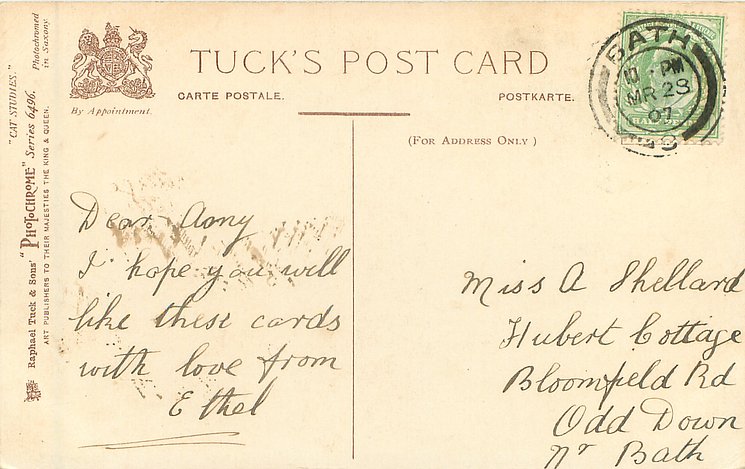 "CAT STUDIES."
Raphael Tuck & Sons' "PHOTOCHROME" Series 6496. Photochromed
in Saxony.
ART PUBLISHERS TO THEIR MAJESTIES THE KING & QUEEN.
By Appointment.
TUCK'S POST CARD
CARTE POSTALE. POSTKARTE.
(FOR ADDRESS ONLY)
BATH
PM
MR 23
07
Dear Amy
I hope you will
like these cards
with love from
Ethel
Miss A Shellard
Hubert Cottage
Bloomfield Rd
Odd Down
Nr Bath